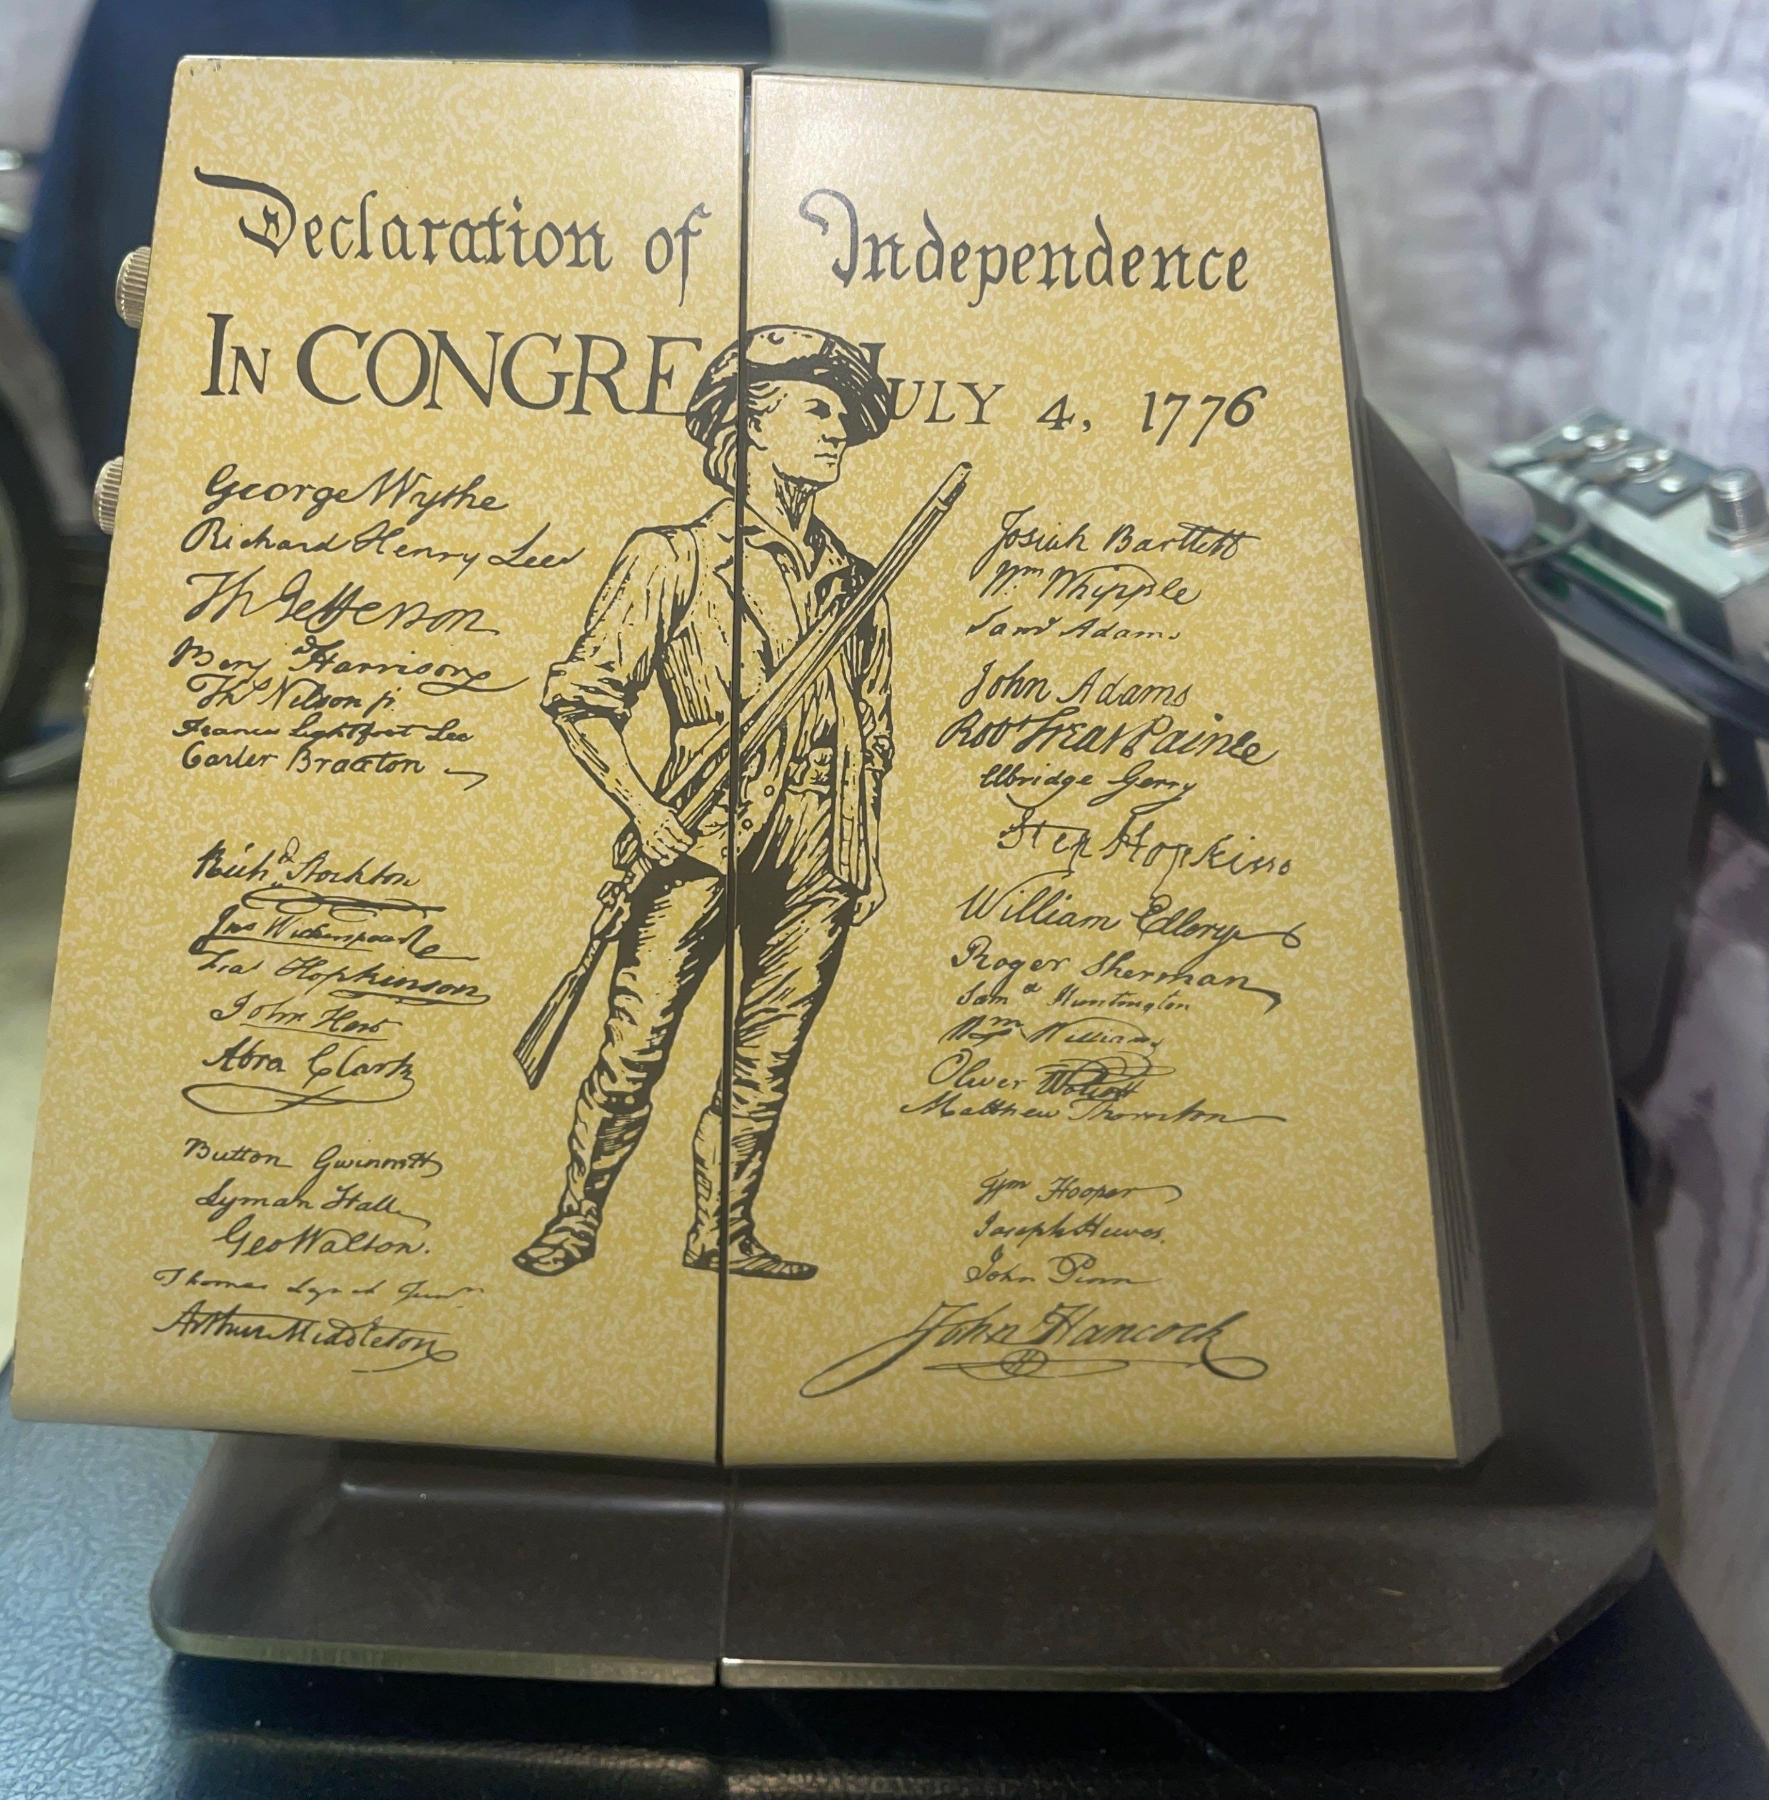 Declaration of Independence
IN CONGRE JULY 4, 1776
George Wythe
Richard Henry Lee
Th Jefferson
Benj Harrison
Thos Nelson jr.
Francis Lightfoot Lee
Carter Braxton
Richd Stockton
Jno Witherspoon
Fras Hopkinson
John Hart
Abra Clark
Button Gwinnett
Lyman Hall
Geo Walton.
Thomas Lynch Junr
Arthur Middleton
Josiah Bartlett
Wm Whipple
Saml Adams
John Adams
Robt Treat Paine
Elbridge Gerry
Step Hopkins
William Ellery
Roger Sherman
Saml Huntington
Wm Williams
Oliver Wolcott
Matthew Thornton
Wm Hooper
Joseph Hewes,
John Penn
John Hancock